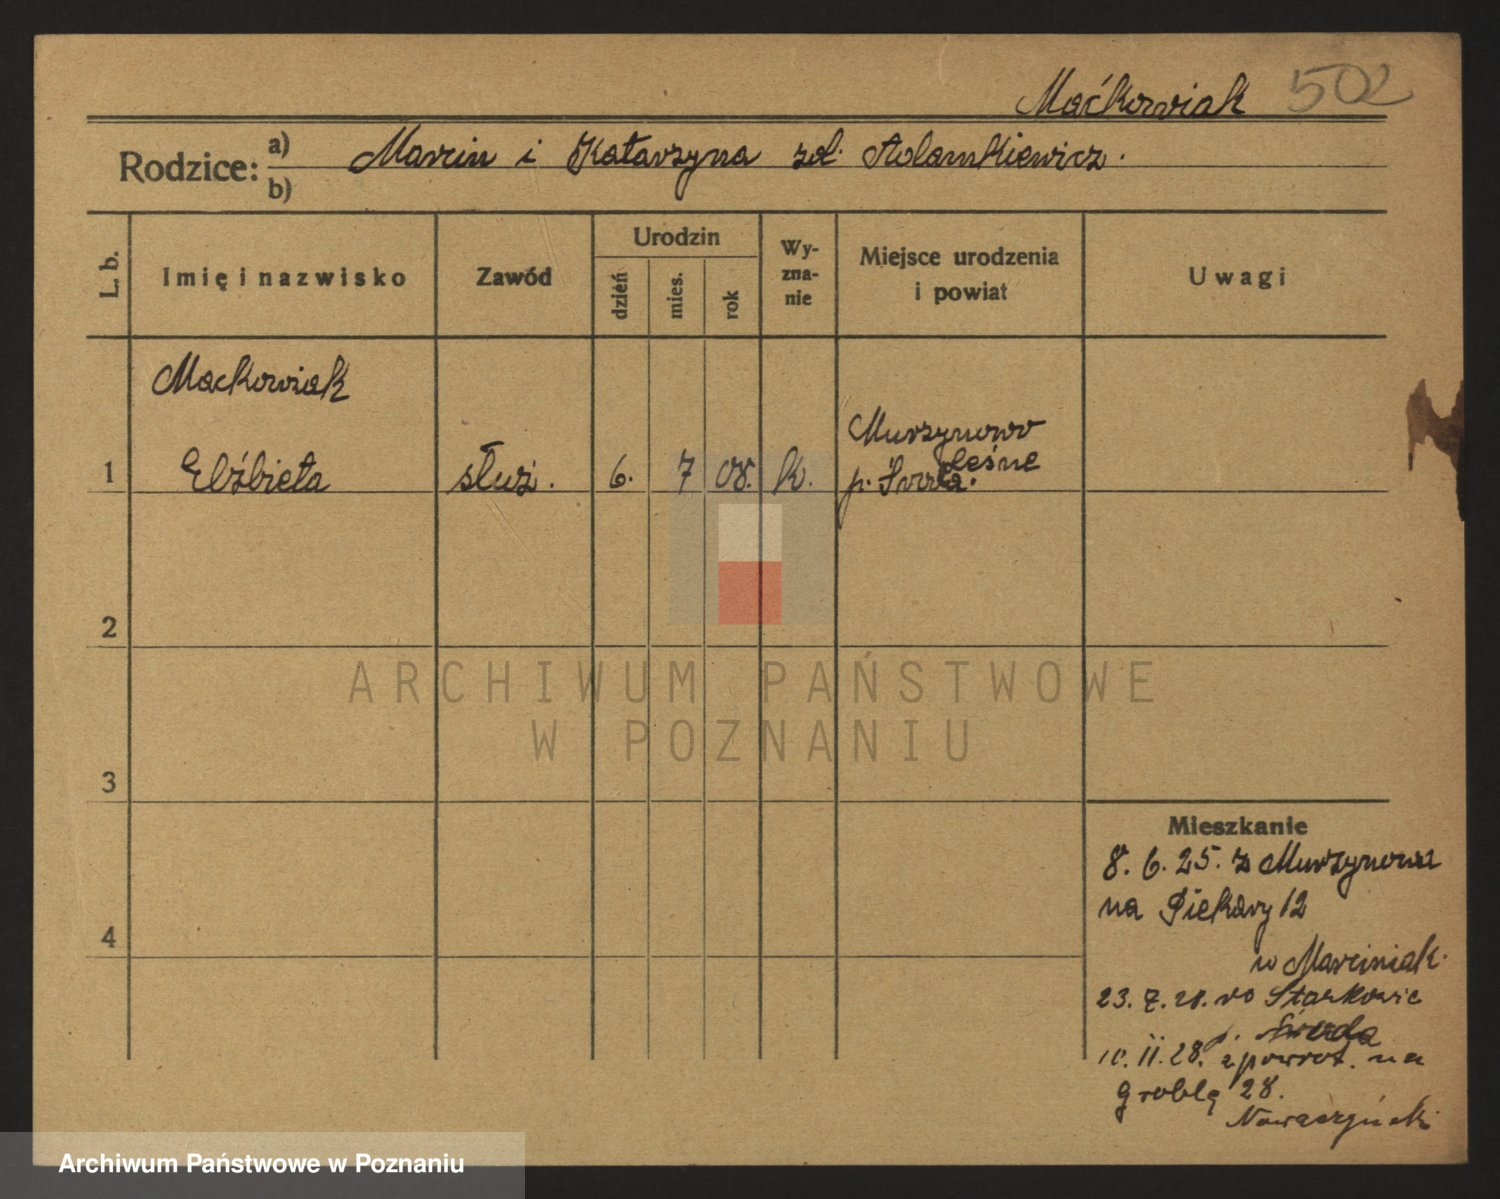 Maćkowiak 502
Rodzice: a) Marcin i Katarzyna zd. Adamkiewicz.
b)
L. b. Imię i nazwisko Zawód Urodzin dzień mies. rok Wy-zna-nie Miejsce urodzenia i powiat Uwagi
Maćkowiak
1 Elżbieta służ. 6. 7 08. k. Murzynowo
Leśne
p. Środa.
2
ARCHIWUM PAŃSTWOWE
W POZNANIU
3
Mieszkanie
8. 6. 25. z Murzynowa
na Piekary 12
4
w Marciniak.
23. 7. 28. do
p. Środa
10. 11. 28. z powrot. na
Groblę 28.
Archiwum Państwowe w Poznaniu